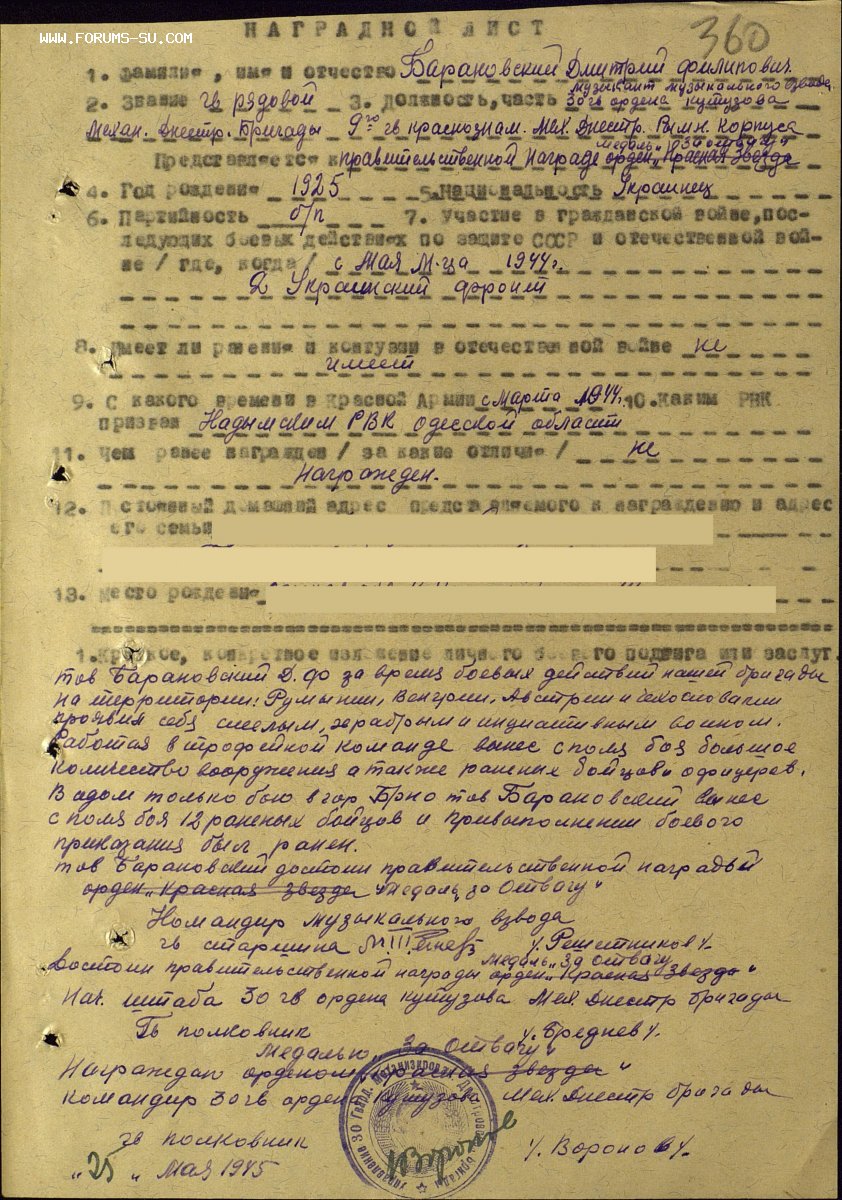 WWW.FORUMS-SU.COM
НАГРАДНОЙ ЛИСТ
360
1. Фамилия, имя и отчество Барановский Дмитрий Филипович.
музыкант музыкального взвода
2. Звание гв рядовой 3. Должность, часть 30 гв ордена кутузова
Механ. Днестр. Бригады 9го гв краснознам. Мех. Днестр. Рымн. Корпуса
медаль „За отвагу"
Представляется к правительственной Награде орден „Красная Звезда
4. Год рождения 1925 5. Национальность Украинец
6. Партийность б/п 7. Участие в гражданской войне, пос-
ледующих боевых действиях по защите СССР и отечественной вой-
не / где, когда / с Мая М-ца 1944г.
2 Украинский фронт
8. Имеет ли ранения и контузии в отечественной войне не
имеет
9. С какого времени в Красной Армии с Марта 1944г. 10. Каким РВК
призван РВК одесской области
11. Чем ранее награжден / за какие отличия / не
Награжден.
12. Постоянный домашний адрес представляемого к награждению и адрес
его семьи
13. Место рождения
1. Краткое, конкретное изложение личного боевого подвига или заслуг.
тов Барановский Д. Ф за время боевых действий нашей бригады
на территории: Румынии, Венгрии, Австрии и Чехословакии
проявил себя смелым, храбрым и инциативным воином.
Работая в трофейной команде вынес с поля боя большое
количество вооружения а также раненых бойцов и офицеров.
В одом только бою в гор. Брно тов Барановский вынес
с поля боя 12 раненых бойцов и при выполнении боевого
приказания был ранен.
тов Барановский достоин правительственной награды
орден „Красная Звезда „Медаль „за Отвагу"
Командир музыкального взвода
гв старшина /Решетников/.
Медаль „За Отвагу
Достоин правительственной награды орден „Красная Звезда"
Нач. штаба 30 гв ордена кутузова Мех. Днестр бригады
Гв полковник /Бреднев/.
Медалью „За Отвагу"
Награждаю орденом „красная звезда"
командир 30 гв орден кутузова Мех. Днестр бригады
гв полковник /Воронов/.
„25 „ Мая 1945
Управление 30 Гвард. Механизирован Бригады